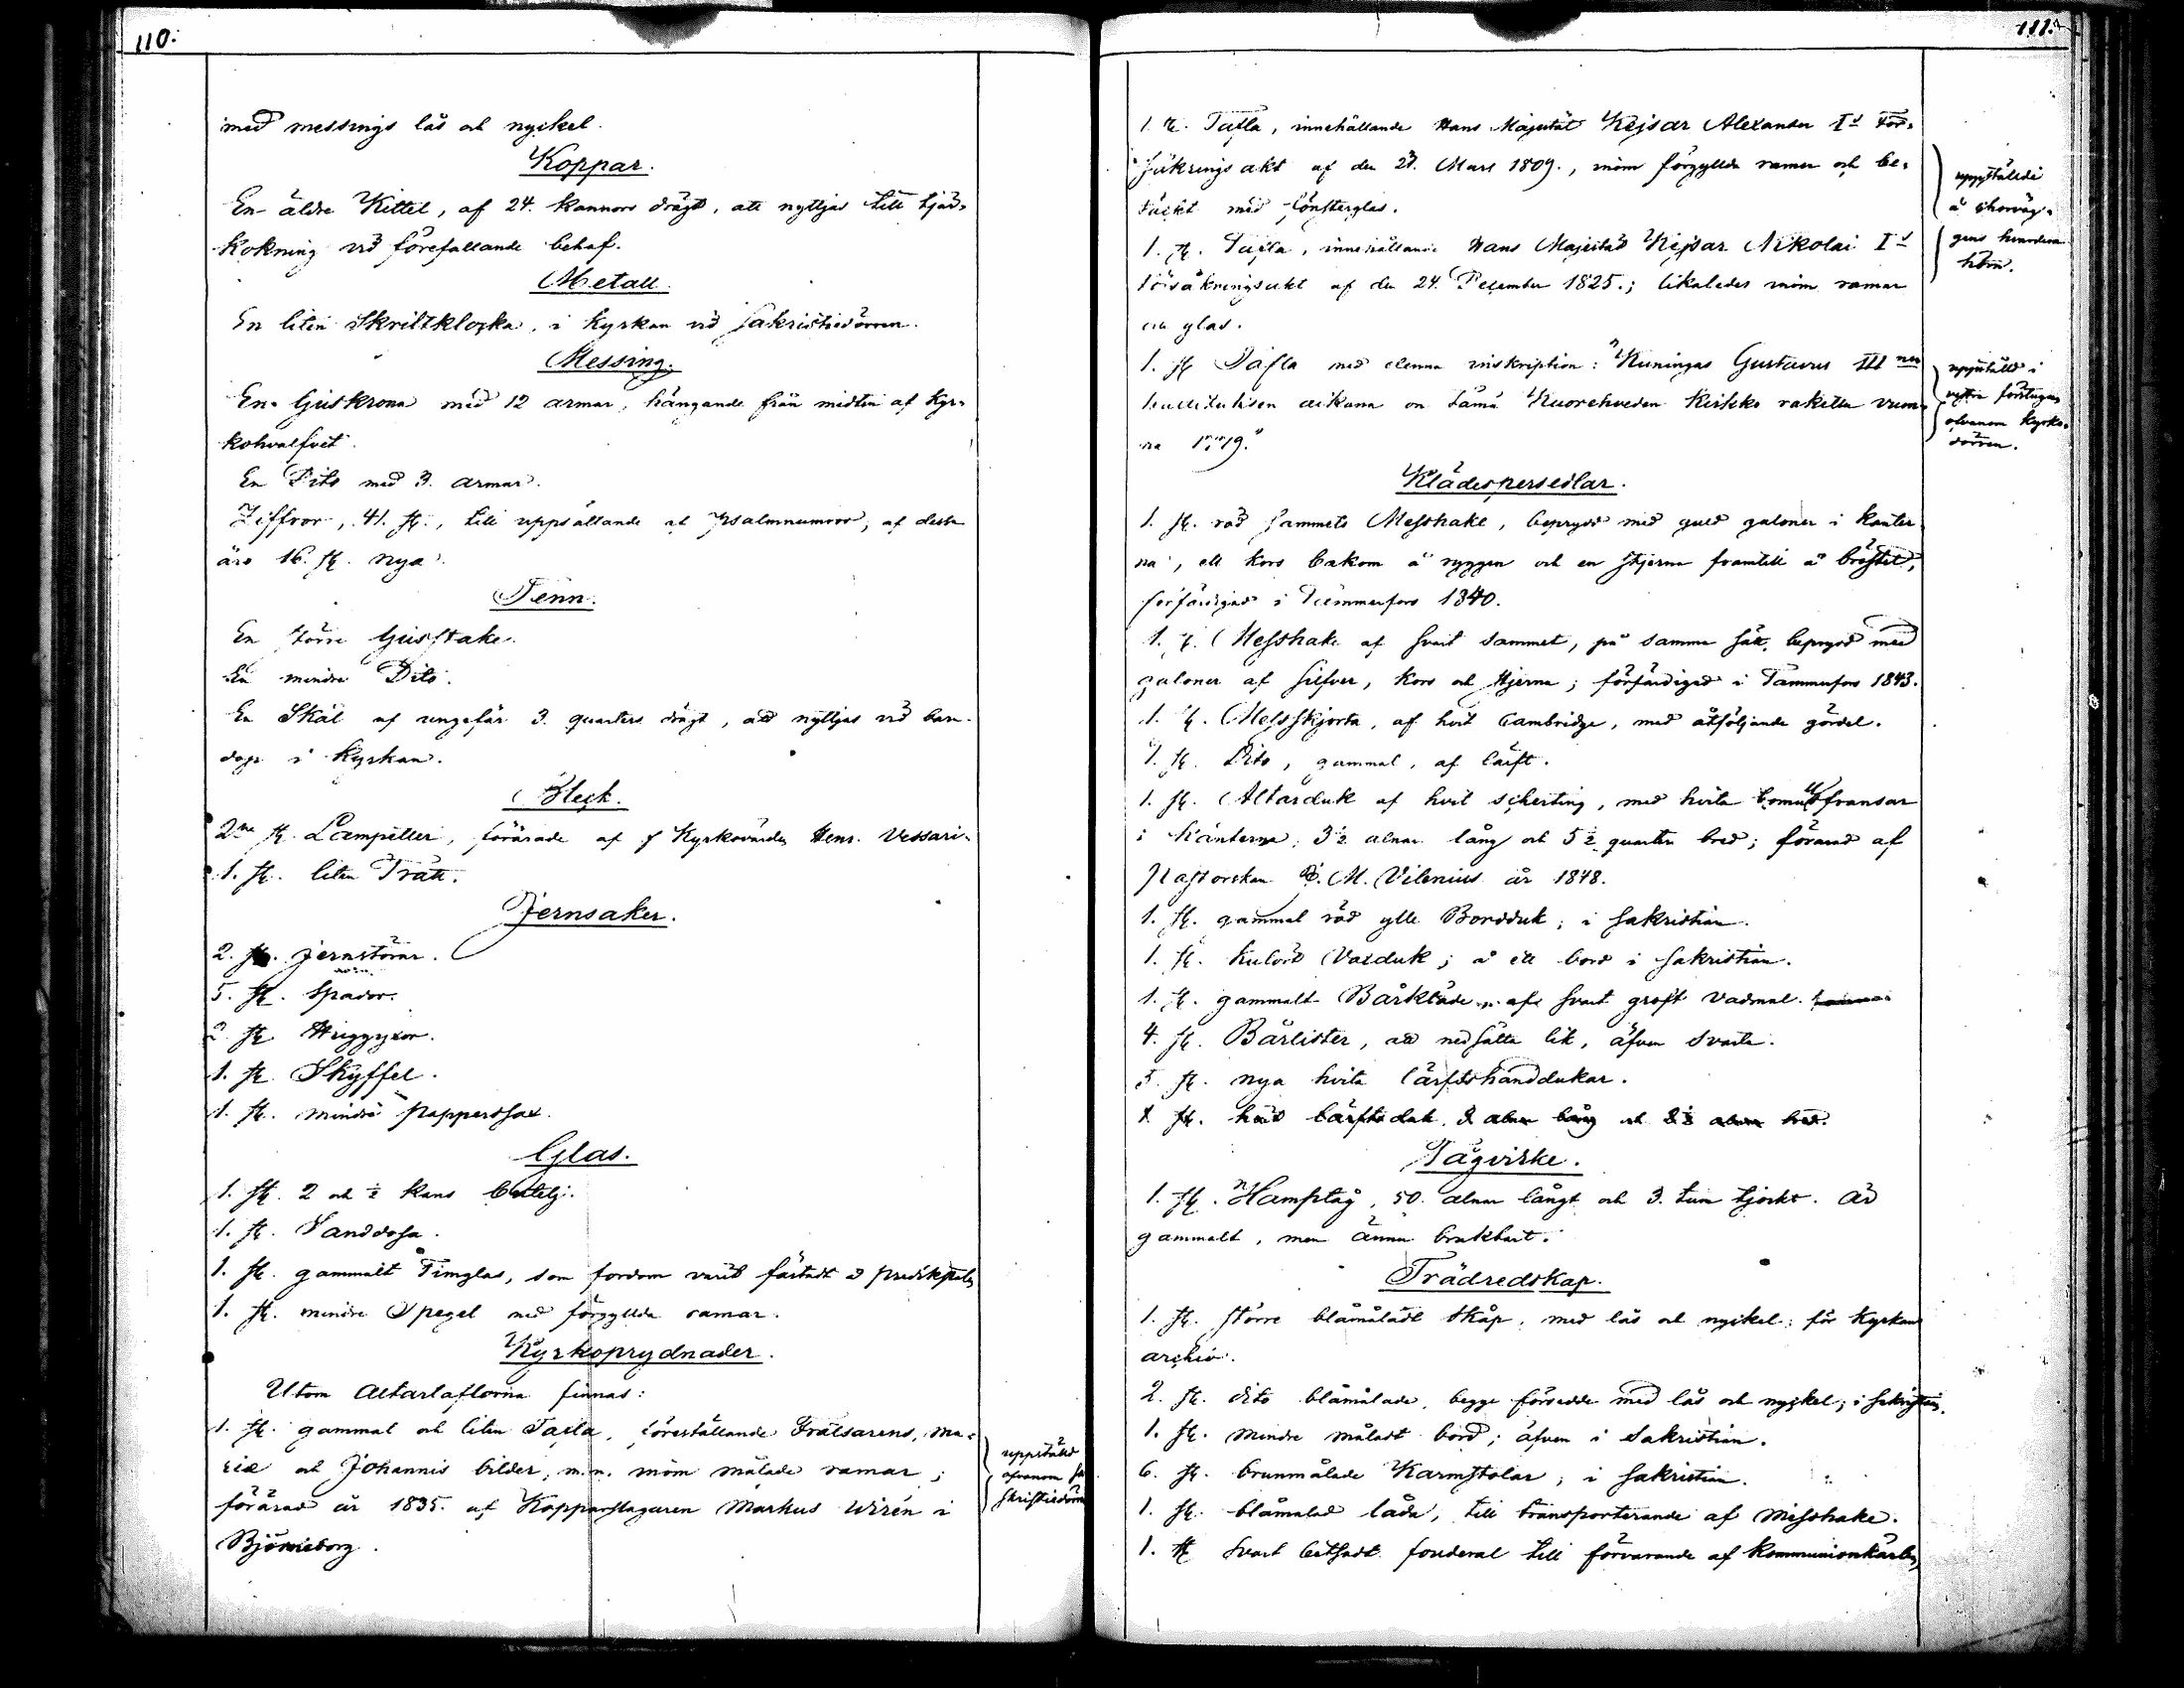 110.
med messings lås och nyckel.
Koppar.
En äldre Kittel, af 24. kannors drägt, att nyttjas till tjär-
kokning vid förefallande behof.
Metall.
En liten Skriftklocka, i kyrkan vid sakristiedörren.
Messing.
En Ljuskrona med 12 armar, hängande från midten af kyr-
kohvalfvet.
En Dito med 3. armar.
Ziffror, 41. st., till uppsättande af psalmnumror, af dessa
äro 16. st. nya.
Tenn.
En större Ljusstake.
En mindre Dito.
En Skål af ungefär 3. quarters drägt, att nyttjas vid barn-
dop i kyrkan.
Bleck.
2ne st. Lampetter, förärade af f Kyrkovärden Henr. Vessari.
1. st. liten Tratt.
Jernsaker.
2. st. jernstörar.
5. st. Spador.
2. st.
1. st. Skyffel.
1. st. mindre papperssax.
Glas.
1. st. 2 och ½ kans butelj.
1. st. Sanddosa.
1. st. gammalt Timglas, som fordom varit fästadt å predikstolen
1. st. mindre Spegel med förgyllda ramar.
Kyrkoprydnader.
Utom Altartaflorna finnas:
1. st. gammal och liten Tafla, föreställande Frälsarens, Ma-
riæ och Johannis bilder, m.m. inom målade ramar;
förärad år 1835. af Kopparslagaren Markus Wirén i
Björneborg.
uppstäld
ofvanom sa
kristiedörre
111.
1. st. Tafla, innehållande Hans Majestät Kejsar Alexander Is För-
säkringsakt af den 27. Mars 1809., inom förgyllda ramar och be-
täckt med fönsterglas.
1. st. Tafla, innehållande Hans Majestäts Kejsar Nikolai Is
försäkringsakt af den 24. December 1825.; likaledes inom ramar
och glas.
uppstälde
å chorväg-
gens hvardera
hörn.
1. st Tafla med denna inskription: "Kuningas Gustavus III nen
hallituksen aikana on tämä Kuorehveden Kirkko rakettu vuon-
na 1779."
uppstäld i
vestra förstugan
ofvanom kyrko-
dörren.
Klädespersedlar.
1. st. röd sammets Messhake, beprydd med guld galoner i kanter-
na, ett kors bakom å ryggen och en stjerna framtill å bröstet,
förfärdigad i Tammerfors 1840.
1. st. Messhake af svart sammet, på samma sätt beprydd med
galoner af silfver, kors och stjerna; förfärdigad i Tammerfors 1843.
1. st. Messskjorta, af hvit Cambridge, med åtföljande gördel.
1. st. Dito, gammal, af lärft.
1. st. Altarduk af hvit scherting, med hvita bomullsfransar
i kanterna, 3½ alnar lång och 5½ quarter bred; förärad af
Pastorskan M. Vilenius år 1848.
1. st. gammal röd ylle Bordduk; i sakristian.
1. st. kulört Vaxduk; å ett bord i sakristian.
1. st. gammalt Bårkläde af svart groft vadmal.
4. st. Bårlister, att nedsätta lik, äfven svarta.
5. st. nya hvita lärftshanddukar.
1. st. hvit lärftsduk, 2 alnar lång och 2½ alnar bred.
Tågvirke.
1. st. Hamptåg, 50. alnar långt och 3. tum tjockt. Är
gammalt, men ännu brukbart.
Trädredskap.
1. st. större blåmåladt skåp, med lås och nyckel; för Kyrkans
archiv.
2. st. dito blåmålade, begge försedde med lås och nyckel; i sakristian.
1. st. mindre måladt bord; äfven i sakristian.
6. st. brunmålade Karmstolar; i sakristian.
1. st. blåmålad låda, till transporterande af messhake.
1. st svart betsadt fouderal till förvarande af kommunionkärlen